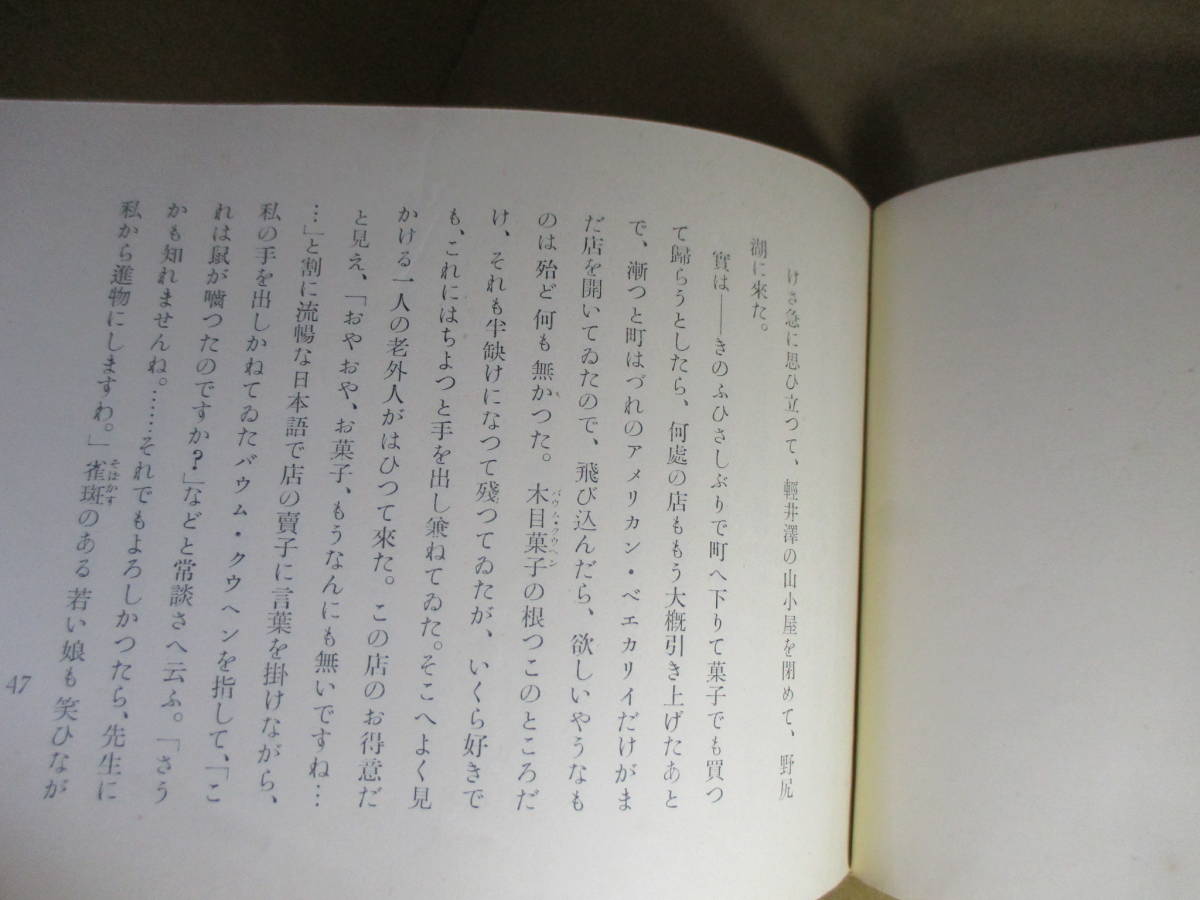 けさ急に思ひ立つて、輕井澤の山小屋を閉めて、野尻
湖に來た。
實は――きのふひさしぶりで町へ下りて菓子でも買つ
て歸らうとしたら、何處の店ももう大概引き上げたあと
で、漸つと町はづれのアメリカン・ベエカリイだけがま
だ店を開いてゐたので、飛び込んだら、欲しいやうなも
のは殆ど何も無かつた。木目菓子の根つこのところだ
バウム・クウヘン
け、それも半缺けになつて殘つてゐたが、いくら好きで
も、これにはちよつと手を出し兼ねてゐた。そこへよく見
かける一人の老外人がはひつて來た。この店のお得意だ
と見え、「おやおや、お菓子、もうなんにも無いですね…
…」と割に流暢な日本語で店の賣子に言葉を掛けながら、
私の手を出しかねてゐたバウム・クウヘンを指して、「こ
れは鼠が嚙つたのですか?」などと常談さへ云ふ。「さう
かも知れませんね。……それでもよろしかつたら、先生に
私から進物にしますわ。」雀斑のある若い娘も笑ひなが
そばかす
47